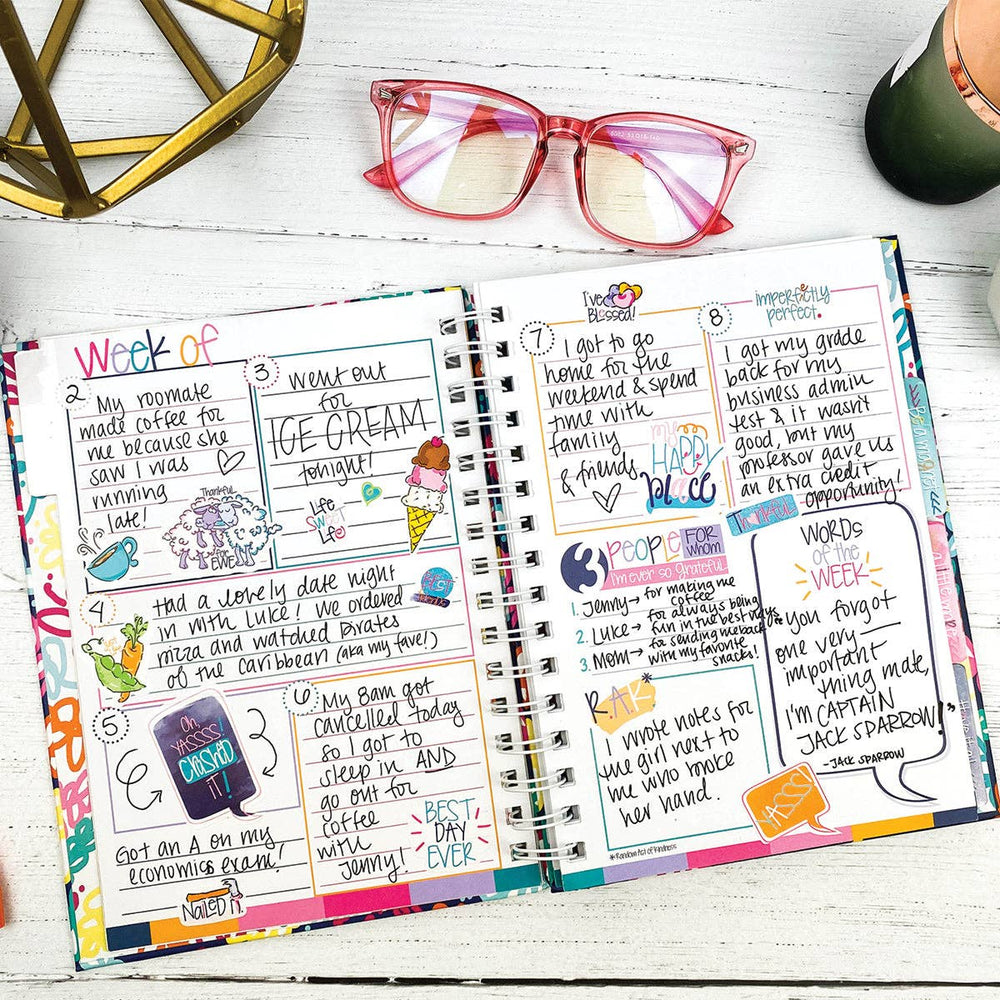 Week of
2
My roomate
made coffee for
me because she
saw I was
running
late!
Thankful
for
EWE
3
Went out
for
ICE CREAM
tonight!
Life
SWEET
Life
4
Had a lovely date night
in with Luke! We ordered
pizza and watched Pirates
of the Caribbean (aka my fave!)
5
Oh,
YASSSS!
CRUSHED
IT!
Got an A on my
economics exam!
NaiLeD iT.
6
My 8am got
cancelled today
so I got to
sleep in AND
go out for
coffee
with
Jenny!
BEST
DAY
EVER
7
I've
BLessed!
I got to go
home for the
weekend & spend
time with
family
& friends
my
HAPPY
place
8
imperfectly
perfect.
I got my grade
back for my
business admin
test & it wasn't
good, but my
professor gave us
an extra credit
opportunity!
Thankful
3 PEOPLE FOR
WHOM
I'm ever so grateful
1. Jenny → for making me
coffee
2. Luke → for always being
fun in the best ways
3. Mom → for sending me back
with my favorite
snacks!
R.A.K*
I wrote notes for
the girl next to
me who broke
her hand.
*Random Act of Kindness
YASSS!
WORDS
of the
WEEK
"You forgot
one very
important
thing mate,
I'M CAPTAIN
JACK SPARROW!"
-JACK SPARROW